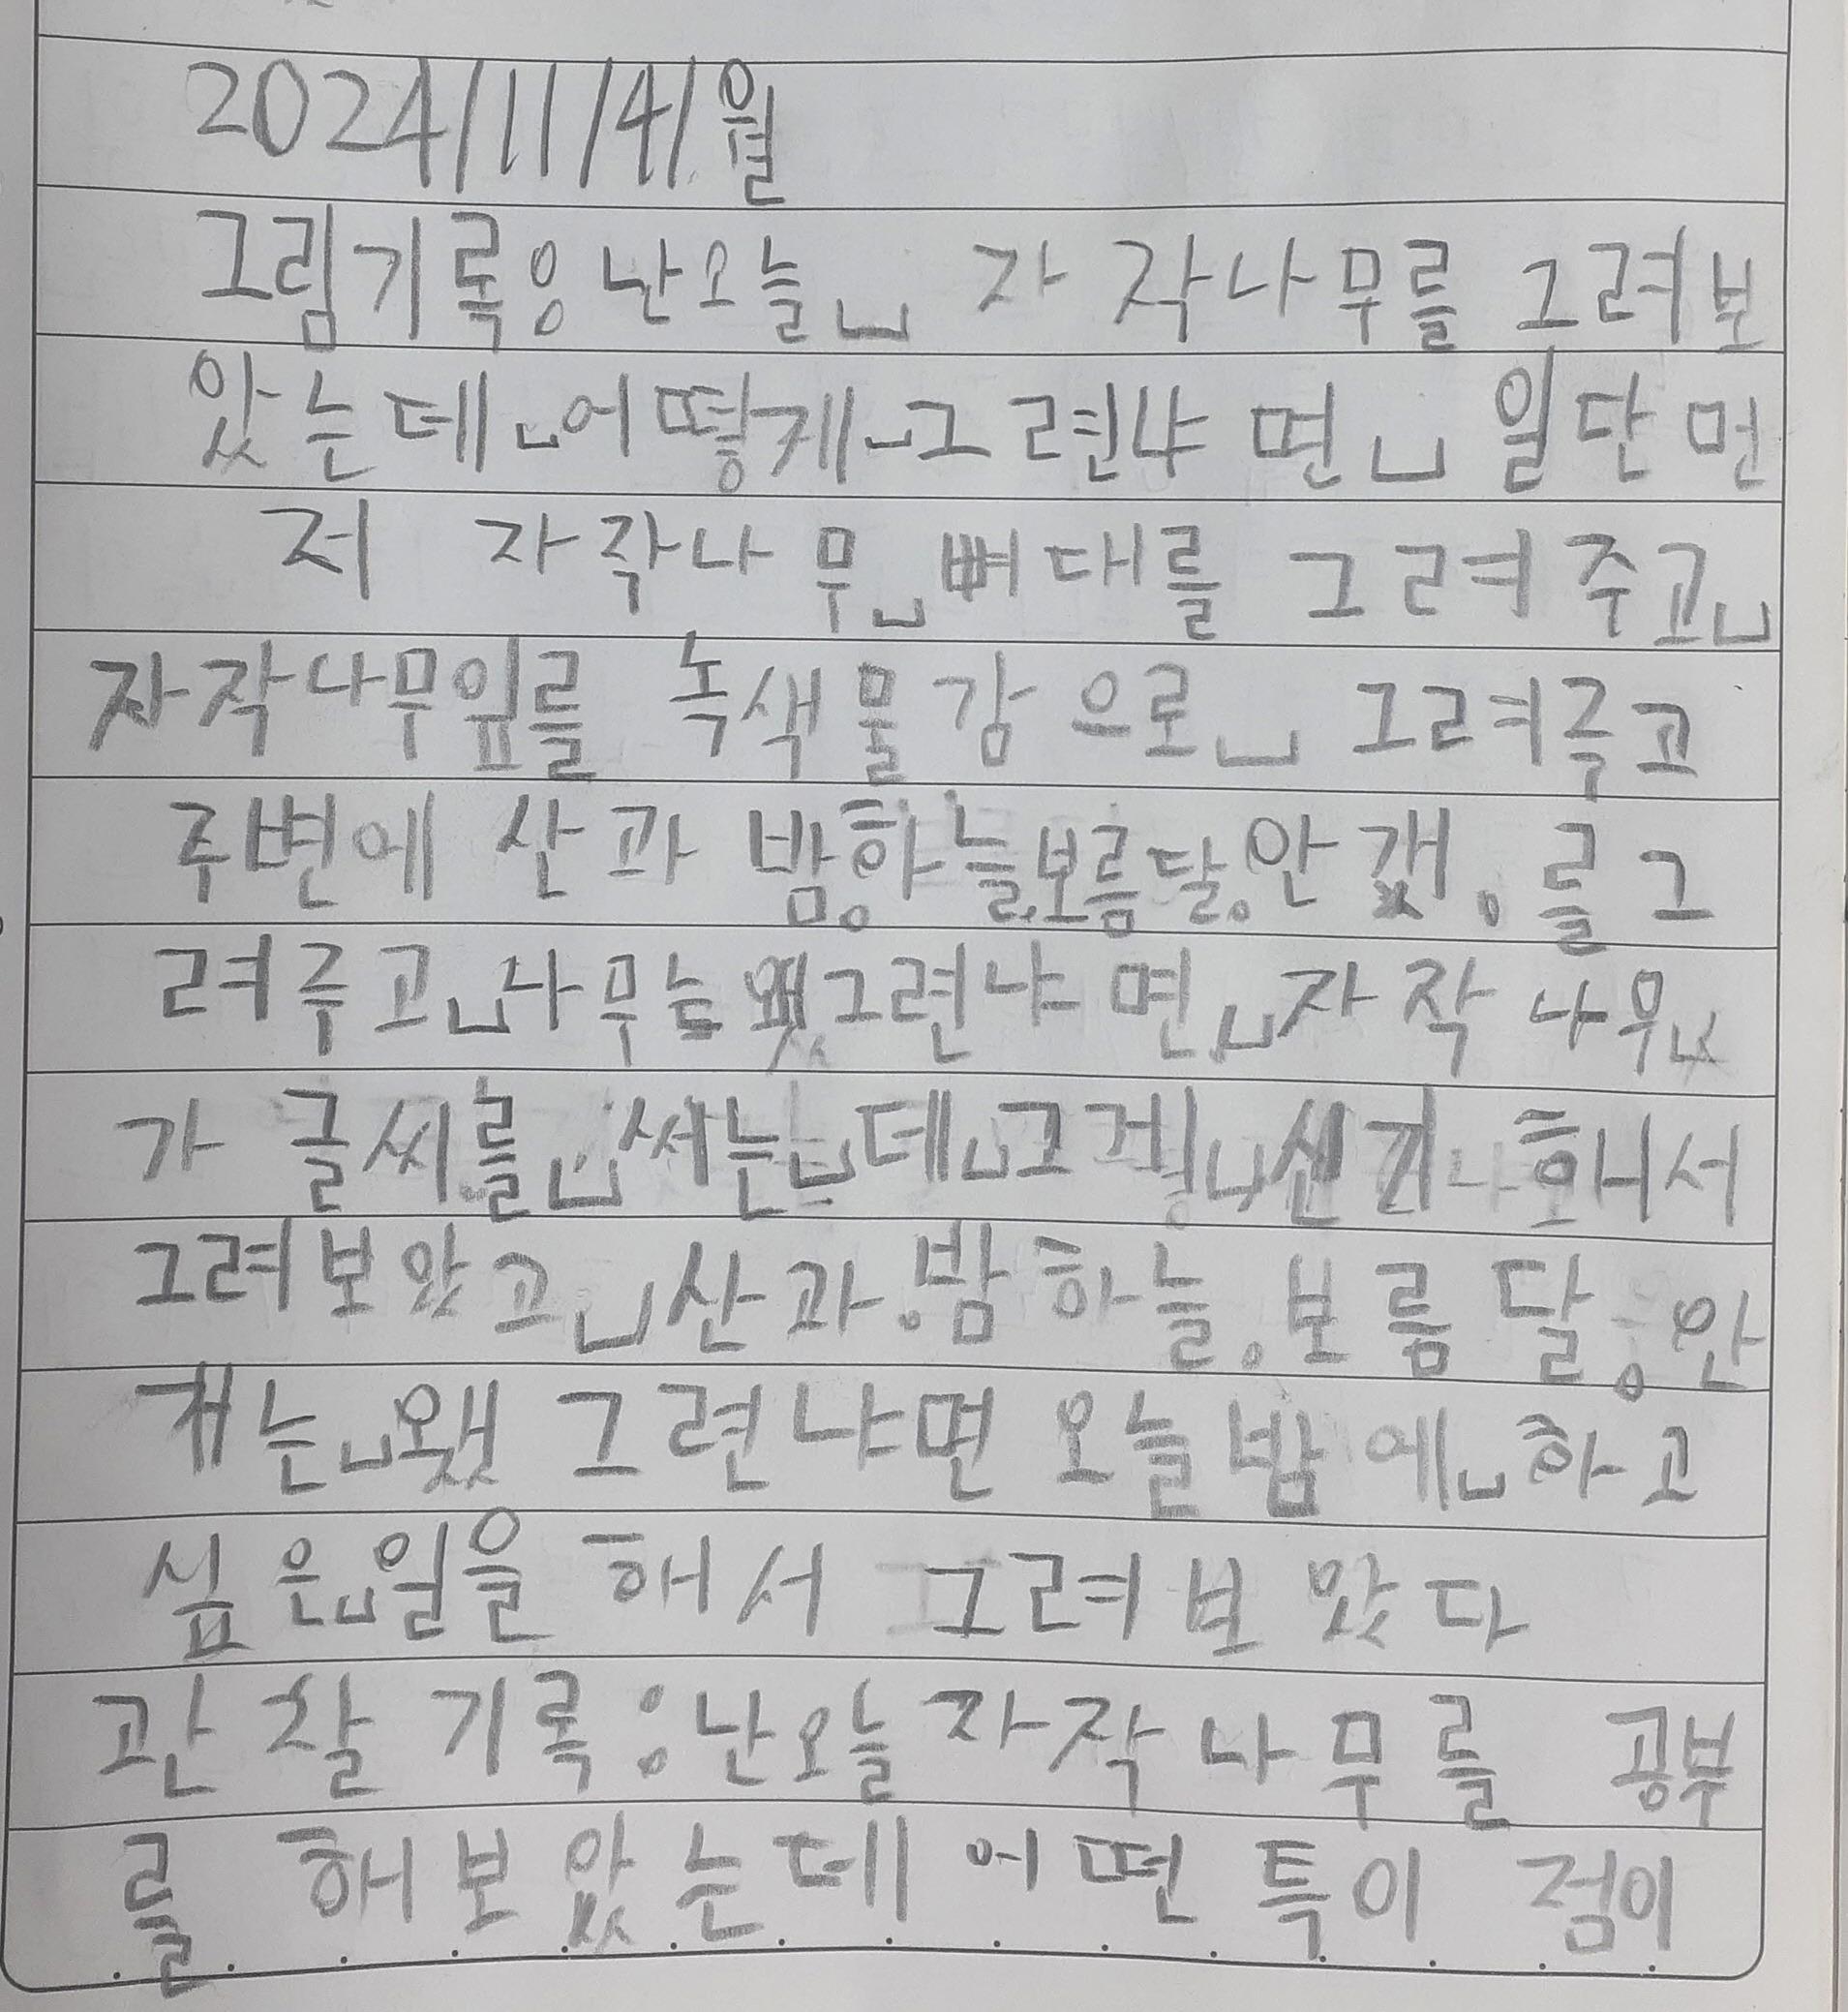 2024/11/4/월
그림기록: 난오늘 자작나무를 그려보
았는데 어떻게 그련냐면 일단먼
저 자작나무 뼈대를 그려주고
자작나무잎를 녹색물감으로 그려주고
주변에 산과 밤하늘.보름달.안갰.를그
려주고 나무는왰그련냐면 자작나무
가 글씨를 써는데 그게 신기해서
그려보았고 산과.밤하늘.보름달.안
개는 왰 그련냐면 오늘밤에 하고
싶은 일을 해서 그려보았다
관찰기록: 난오늘자작나무를 공부
를 해보았는데 어떤특이점이